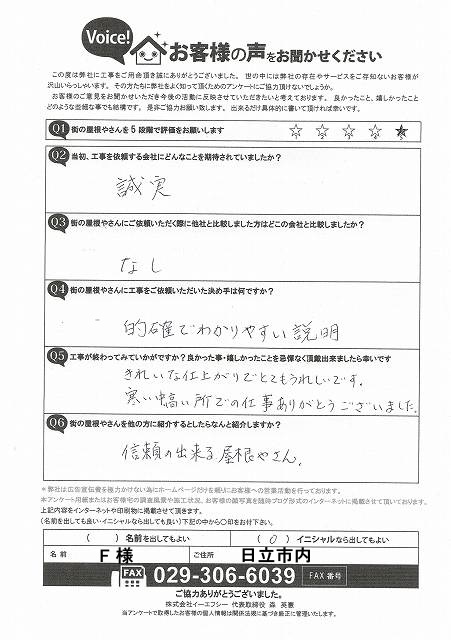 Voice!
お客様の声をお聞かせください
この度は弊社に工事をご用命頂き誠にありがとうございました。世の中には弊社の存在やサービスをご存知ないお客様が
沢山いらっしゃいます。その方たちに弊社をよく知って頂くためのアンケートにご協力頂けないでしょうか。
お客様のご意見をお聞かせいただき今後の活動に反映させていただきたいと考えております。良かったこと、嬉しかったこと
どのような些細な事でも結構です。是非ご協力お願い致します。出来るだけ具体的に書いて頂ければ幸いです。
Q1 街の屋根やさんを5段階で評価をお願いします ☆ ☆ ☆ ☆ ★
Q2 当初、工事を依頼する会社にどんなことを期待されていましたか?
誠実
Q3 街の屋根やさんにご依頼いただく際に他社と比較しました方はどこの会社と比較しましたか?
なし
Q4 街の屋根やさんに工事をご依頼いただいた決め手は何ですか?
的確でわかりやすい説明
Q5 工事が終わってみていかがですか?良かった事・嬉しかったことを忌憚なく頂戴出来ましたら幸いです
きれいな仕上がりでとてもうれしいです。
寒い中高い所での仕事ありがとうございました。
Q6 街の屋根やさんを他の方に紹介するとしたらなんと紹介しますか?
信頼の出来る屋根やさん。
*弊社は広告宣伝費を極力かけない為にホームページだけを頼りにお客様への営業活動を行っております。
本アンケート用紙またはお客様宅の調査風景や施工状況、お客様の顔写真を随時ブログ形式のインターネットに掲載させて頂いております。
上記内容をインターネットや印刷物に掲載させて頂きます。
(名前を出しても良い・イニシャルなら出しても良い)下記の中から〇印をお付下さい。
( ) 名前を出してもよい ( 〇 ) イニシャルなら出してもよい
名前 F様 ご住所 日立市内
FAX 029-306-6039 FAX番号
ご協力ありがとうございました。
株式会社イーエフシー 代表取締役 森 英憲
当アンケートで取得したお客様の個人情報は関係法規に基づき厳正に管理いたします。